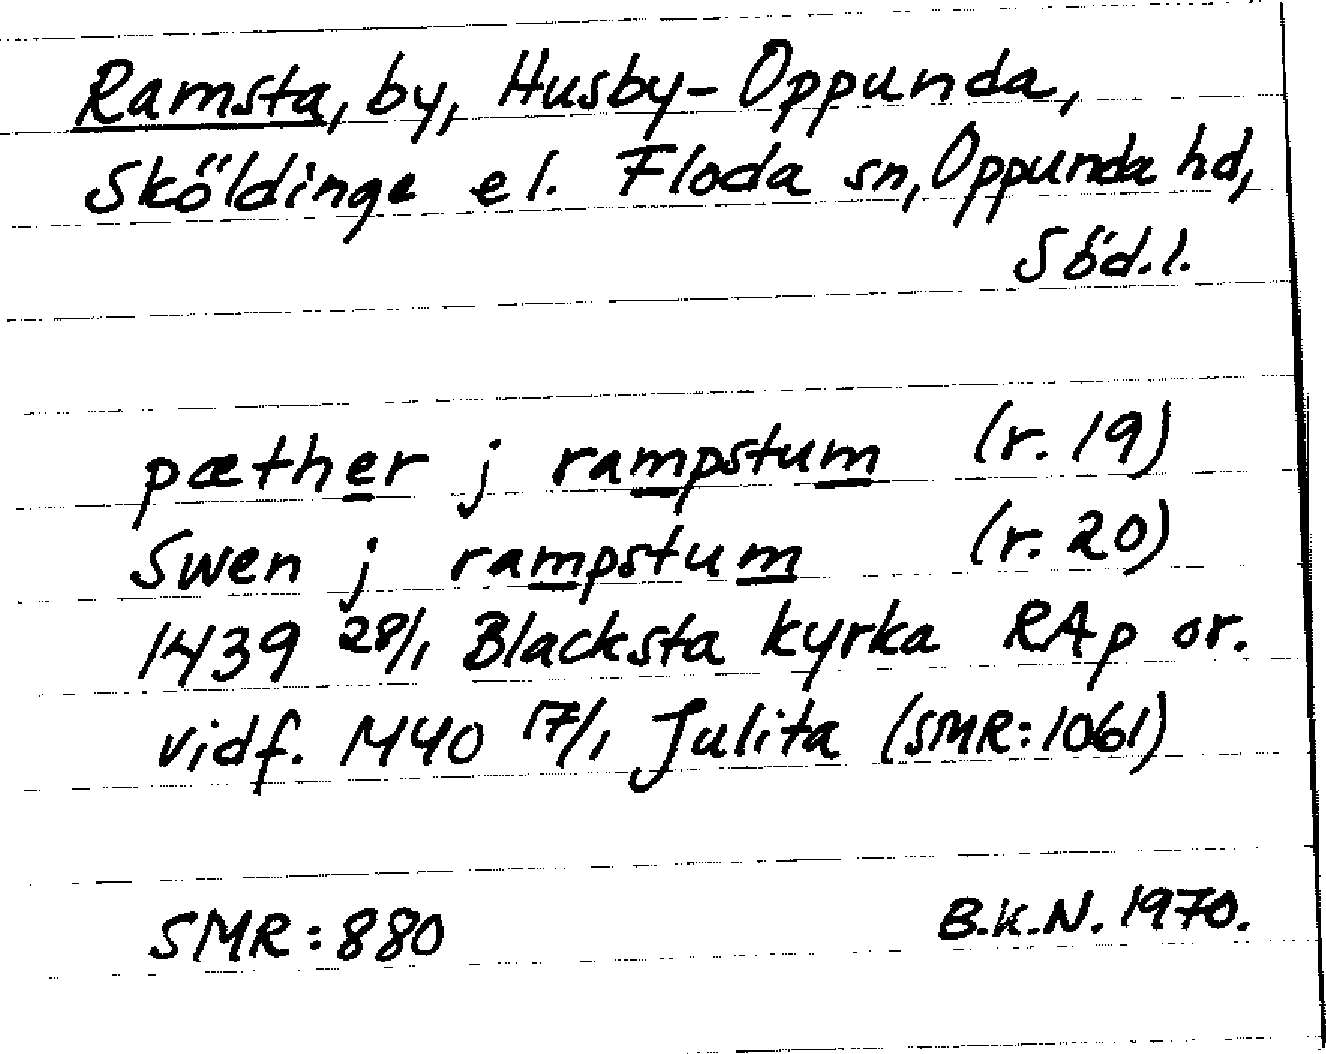 Ramsta, by, Husby-Oppunda,
Sköldinge el. Floda sn, Oppunda hd,
Söd.l.
pæther j rampstum (r. 19)
Swen j rampstum (r. 20)
1439 28/1 Blacksta kyrka RAp or.
vidf. 1440 17/1 Julita (SMR:1061)
SMR:880 B.K.N. 1970.